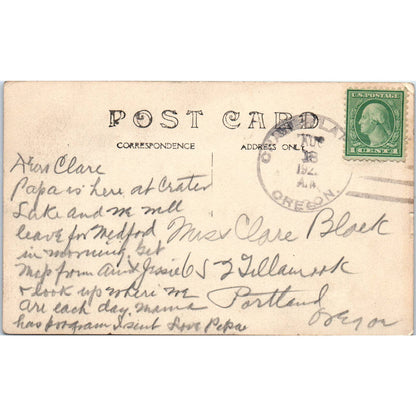 POST CARD
CORRESPONDENCE
ADDRESS ONLY
U.S. POSTAGE
CRATER LAKE
18
192
A.M.
OREGON.
Dear Clare
Papa is here at Crater
Lake and we will
leave for Medford
in morning. Get
map from Aunt Jessie
& look up where we
are each day, mama
has program I sent Love Papa
Miss Clare Black
652 Tillamook
Portland
Oregon